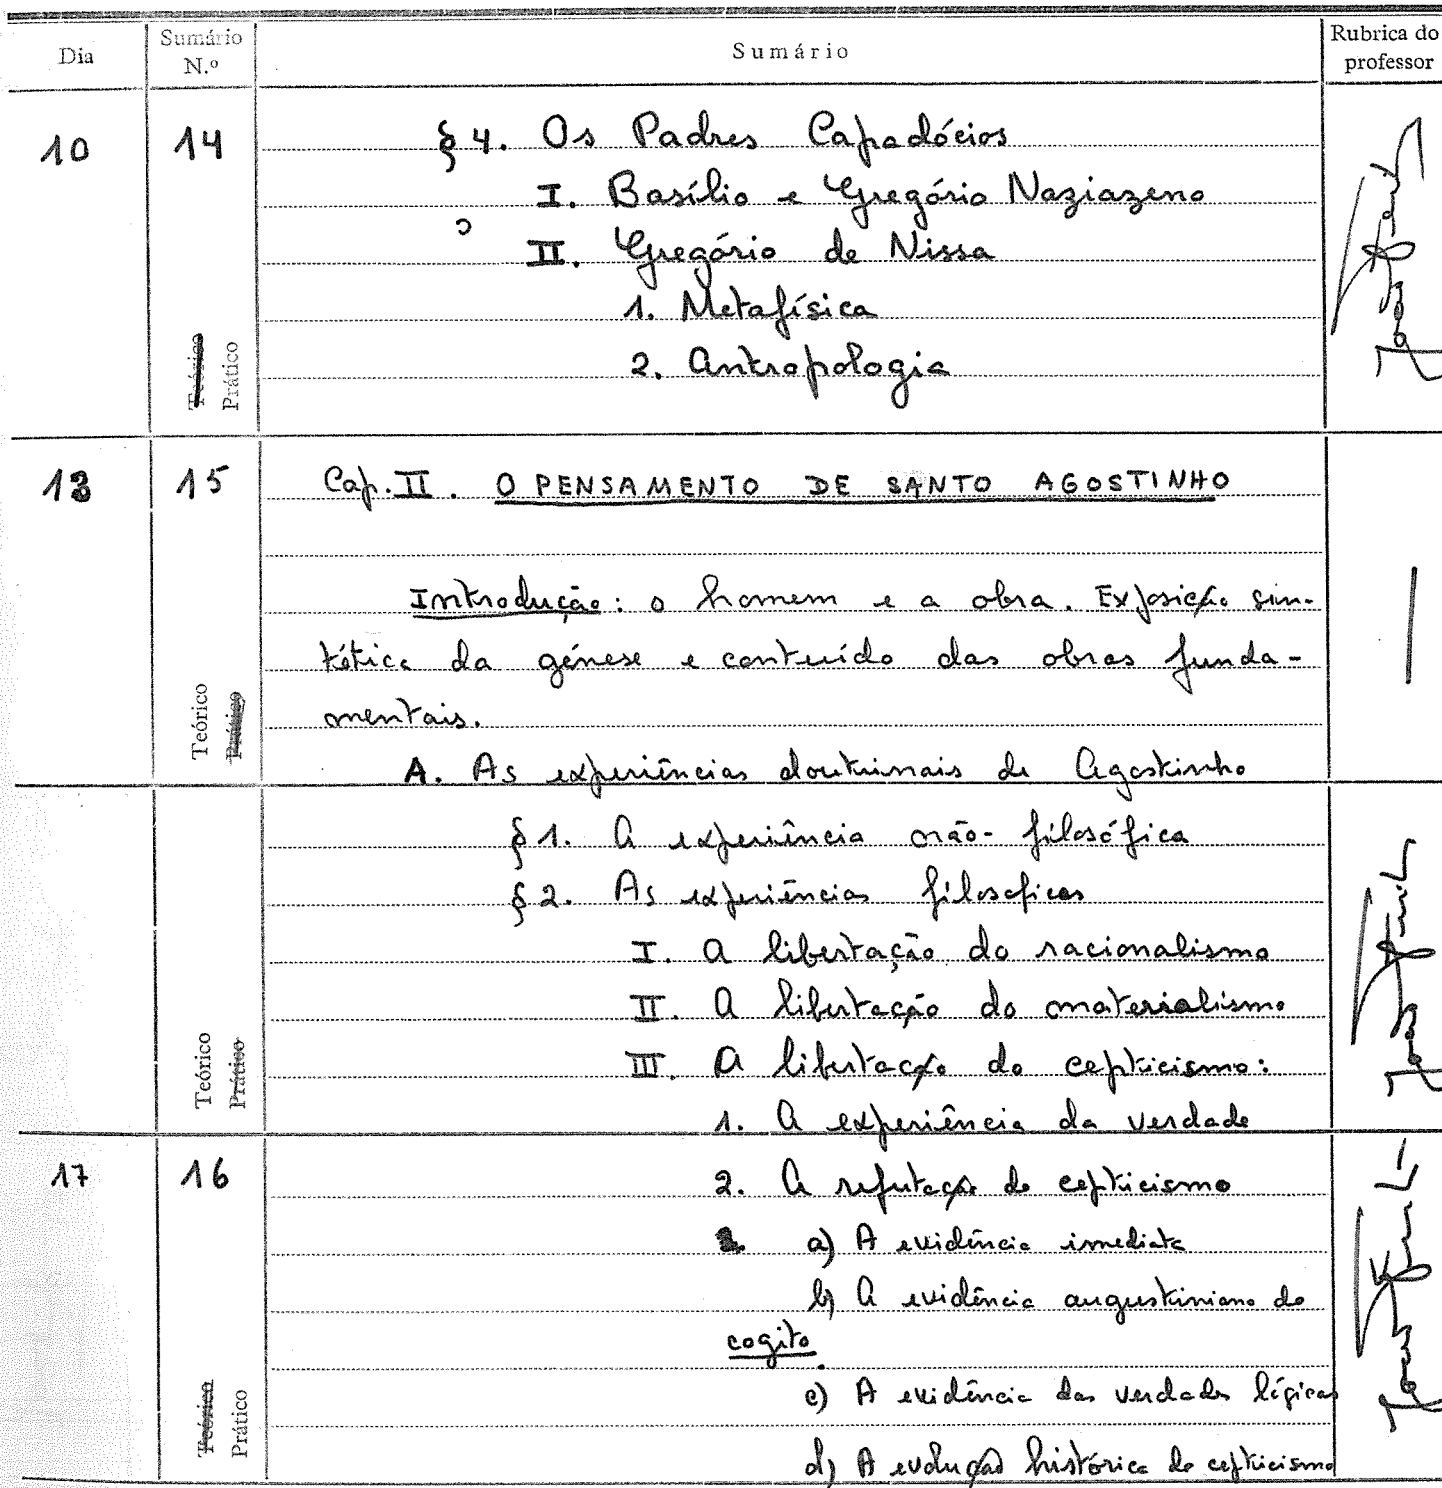 Dia
Sumário N.º
Sumário
Rubrica do professor
10
14
Teórico
Prático
§ 4. Os Padres Capadócios
I. Basílio e Gregório Naziazeno
II. Gregório de Nissa
1. Metafísica
2. Antropologia
13
15
Teórico
Prático
Cap. II. O PENSAMENTO DE SANTO AGOSTINHO
Introdução: o homem e a obra. Exposição sin-
tética da génese e conteúdo das obras funda-
mentais.
A. As experiências doutrinais de Agostinho
Teórico
Prático
§ 1. A experiência não-filosófica
§ 2. As experiências filosoficas
I. A libertação do racionalismo
II. A libertação do materialismo
III. A libertação do cepticismo:
1. A experiência da verdade
17
16
Teórico
Prático
2. A refutação do cepticismo
a) A evidência imediata
b) A evidência augustiniana do
cogito.
c) A evidência das verdades lógicas
d) A evolução histórica do cepticismo